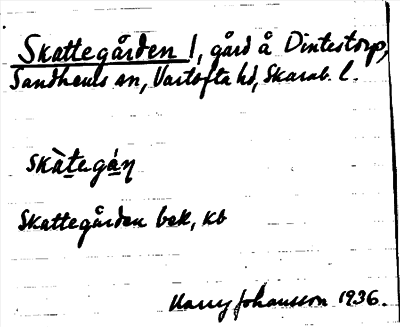 Skattegården 1, gård å Dintestorp,
Sandhems sn, Vartofta hd, Skarab. l.
skàtegán
Skattegården bek, kb
Harry Johansson 1936.